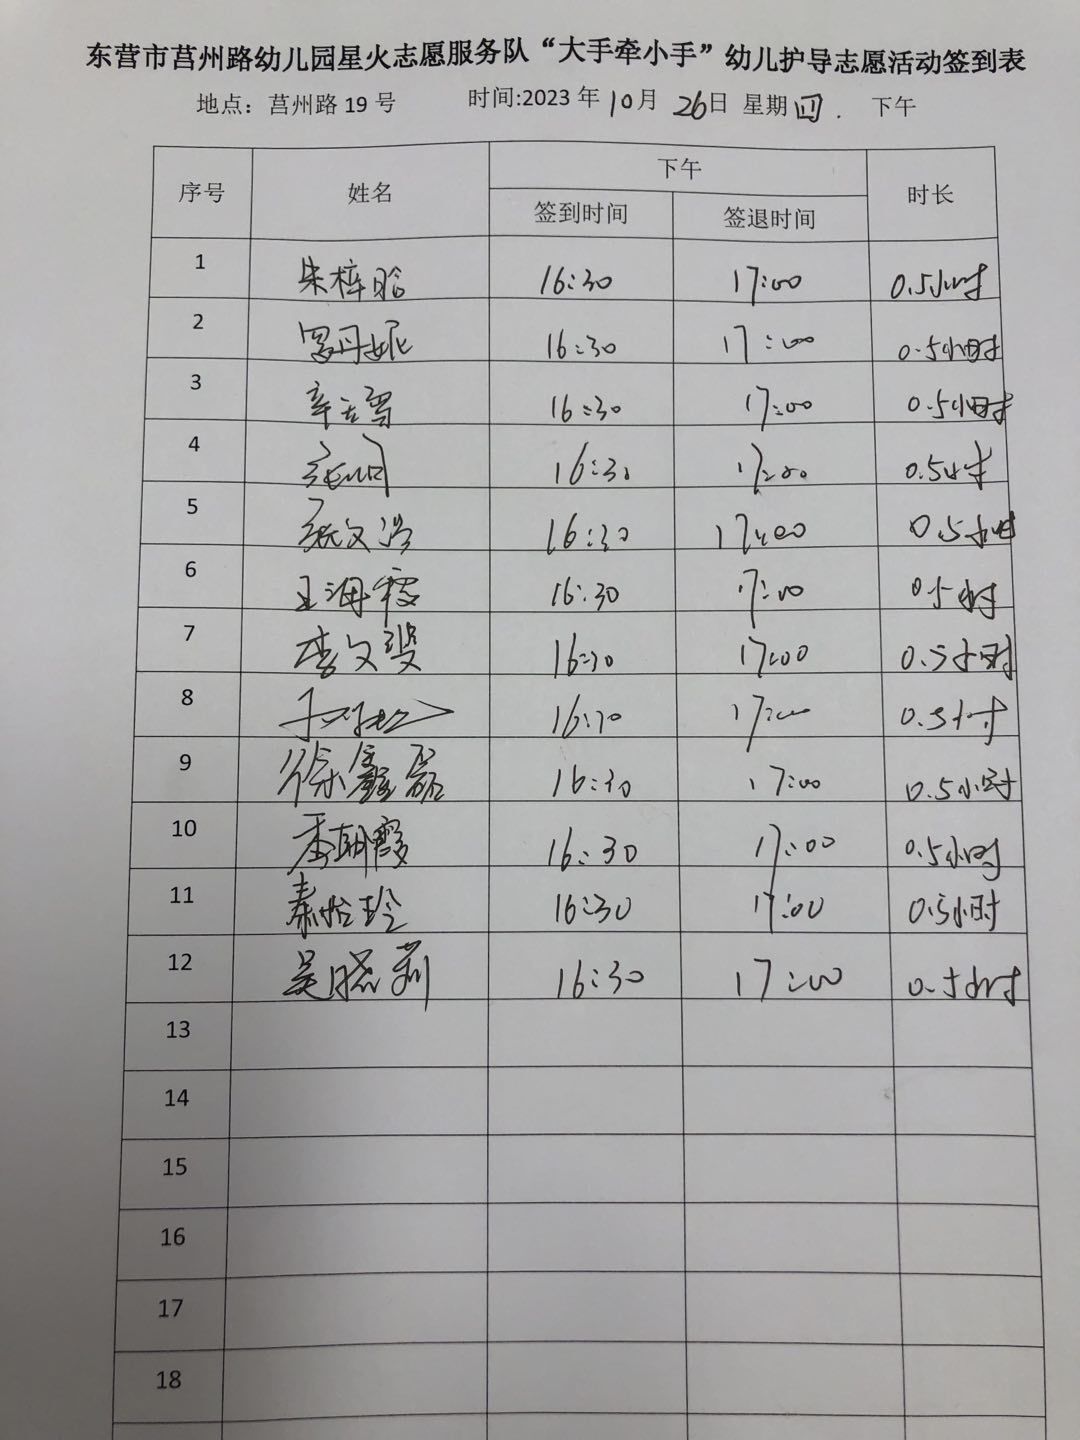 东营市莒州路幼儿园星火志愿服务队“大手牵小手”幼儿护导志愿活动签到表
地点：莒州路 19 号 时间:2023 年 10 月 26 日 星期 四. 下午
序号 姓名 下午 时长
签到时间 签退时间
1 朱梓晗 16:30 17:00 0.5小时
2 罗丹妮 16:30 17:00 0.5小时
3 辛雪 16:30 17:00 0.5小时
4 16:30 17:00 0.5小时
5 张文 16:30 17:00 0.5小时
6 王海霞 16:30 17:00 0.5小时
7 李文斐 16:30 17:00 0.5小时
8 16:30 17:00 0.5小时
9 徐鑫磊 16:30 17:00 0.5小时
10 李朝霞 16:30 17:00 0.5小时
11 秦怡玲 16:30 17:00 0.5小时
12 吴晓莉 16:30 17:00 0.5小时
13
14
15
16
17
18